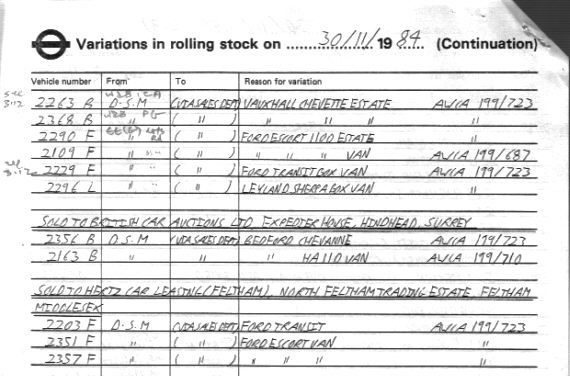 Variations in rolling stock on 30/11/ 19 84 (Continuation)
Vehicle number From To Reason for variation
2263 B D.S.M (VIA SALES DEPT) VAUXHALL CHEVETTE ESTATE AWCA 199/723
2368 B " ( " ) " " " "
2290 F " ( " ) FORD ESCORT 1100 ESTATE "
2109 F " ( " ) " " " VAN AWCA 199/687
2229 F " ( " ) FORD TRANSIT BOX VAN AWCA 199/723
2296 L " ( " ) LEYLAND SHERPA BOX VAN "
SOLD TO BRITISH CAR AUCTIONS LTD EXPEDIER HOUSE, HINDHEAD, SURREY
2356 B D.S.M (VIA SALES DEPT) BEDFORD CHEVANNE AWCA 199/723
2163 B " " HA 110 VAN AWCA 199/710
SOLD TO HERTZ CAR LEASING (FELTHAM), NORTH FELTHAM TRADING ESTATE FELTHAM
MIDDLESEX
2203 F D.S.M (VIA SALES DEPT) FORD TRANSIT AWCA 199/723
2351 F " ( " ) FORD ESCORT VAN "
2357 F " ( " ) " " " "